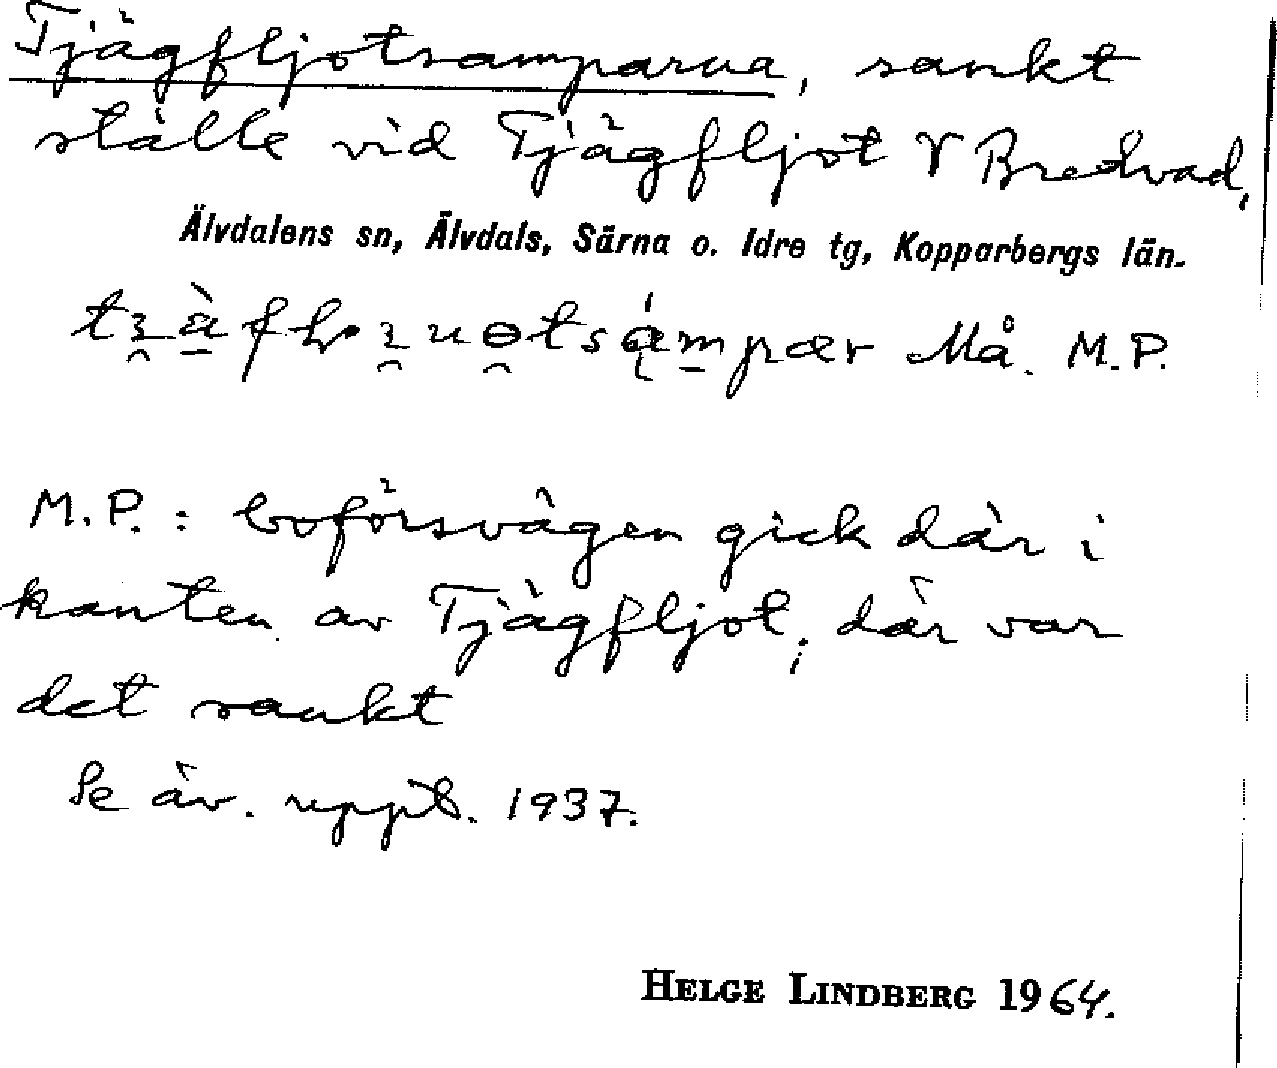 Tjägfljotsamparna, sankt
ställe vid Tjägfljot V Bredvad,
Älvdalens sn, Älvdals, Särna o. Idre tg, Kopparbergs län.
Må. M.P.
M.P.: boförsvägen gick där i
kanten av Tjägfljot; där var
det sankt
Se äv. uppt. 1937.
HELGE LINDBERG 1964.